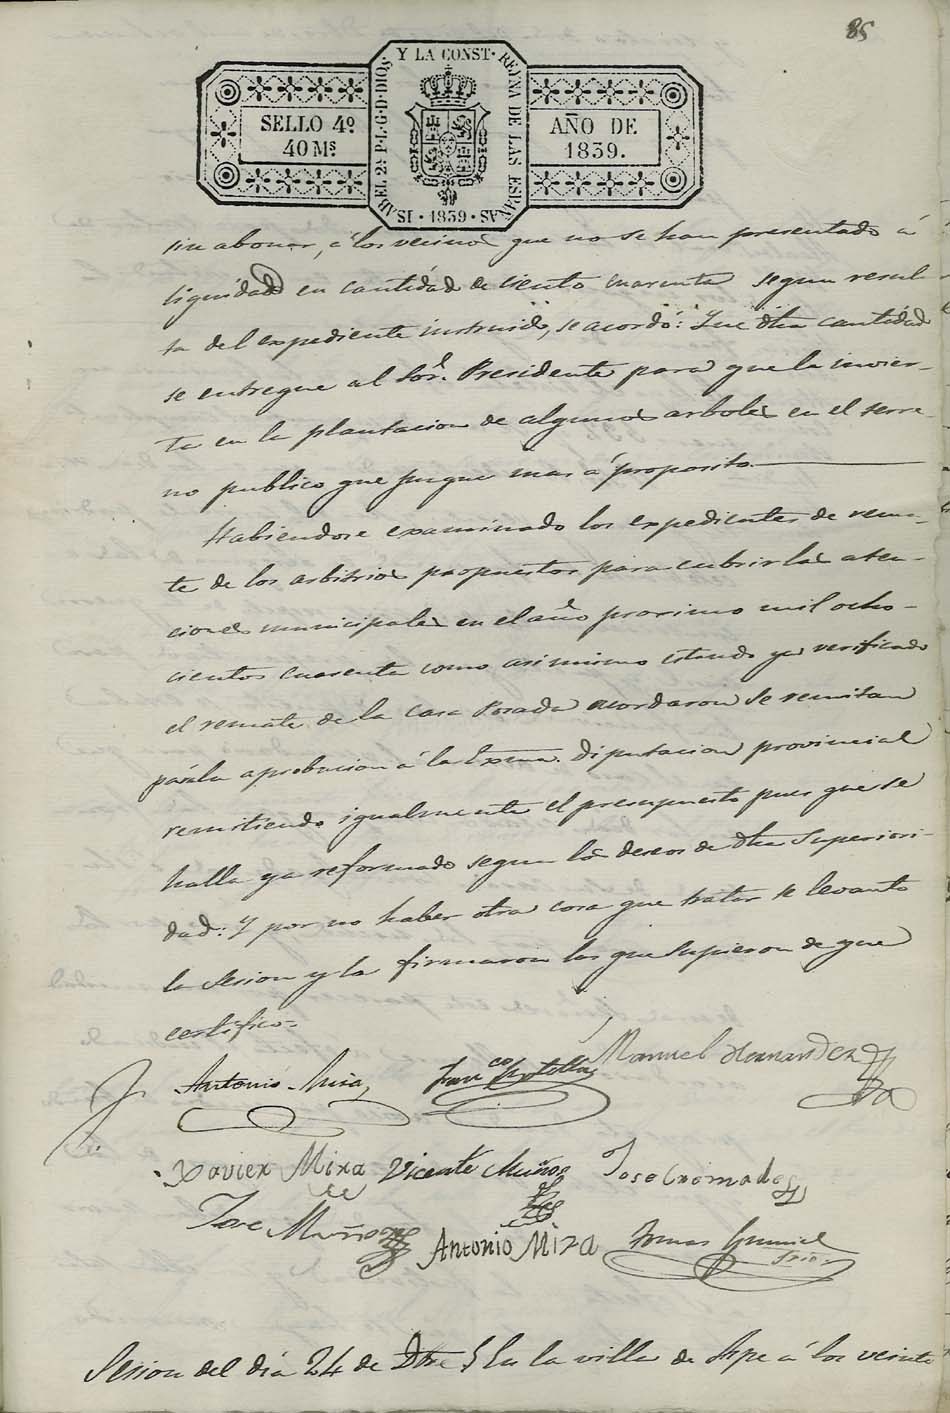 85
ISABEL 2ª P. L. G. D. DIOS Y LA CONST. REYNA DE LAS ESPAÑAS
SELLO 4º
40 Ms.
AÑO DE
1839.
1839
sin abonar, á los vecinos que no se han presentado á
liquidad en cantidad de ciento cuarenta segun resul-
ta del expediente instruido, se acordó: Que dha cantidad
se entregue al Sor. Presidente para que la invier-
ta en la plantacion de algunos arboles en el terre-
no publico que juzgue mas á proposito.
Habiendose examinado los expedientes de rema-
te de los arbitrios propuestos para cubrir las aten-
ciones municipales en el año proximo mil ocho-
cientos cuarenta como asimismo estando ya verificado
el remate de la casa Posada acordaron se remitan
para la aprobacion á la Exma. Diputacion provincial
remitiendo igualmente el presupuesto pues que se
halla ya reformado segun los deseos de dha Superiori-
dad: Y por no haber otra cosa que tratar se levantó
la Sesion y la firmaron los que supieron de que
certifico=
Antonio Franco Manuel Hernandez
Xavier Mixa Vicente Muñoz Jose Cromades
Jose Muñoz Antonio Miza Tomas
Srio.
Sesion del dia 24 de Dbre. En la villa de Aspe á los veinte